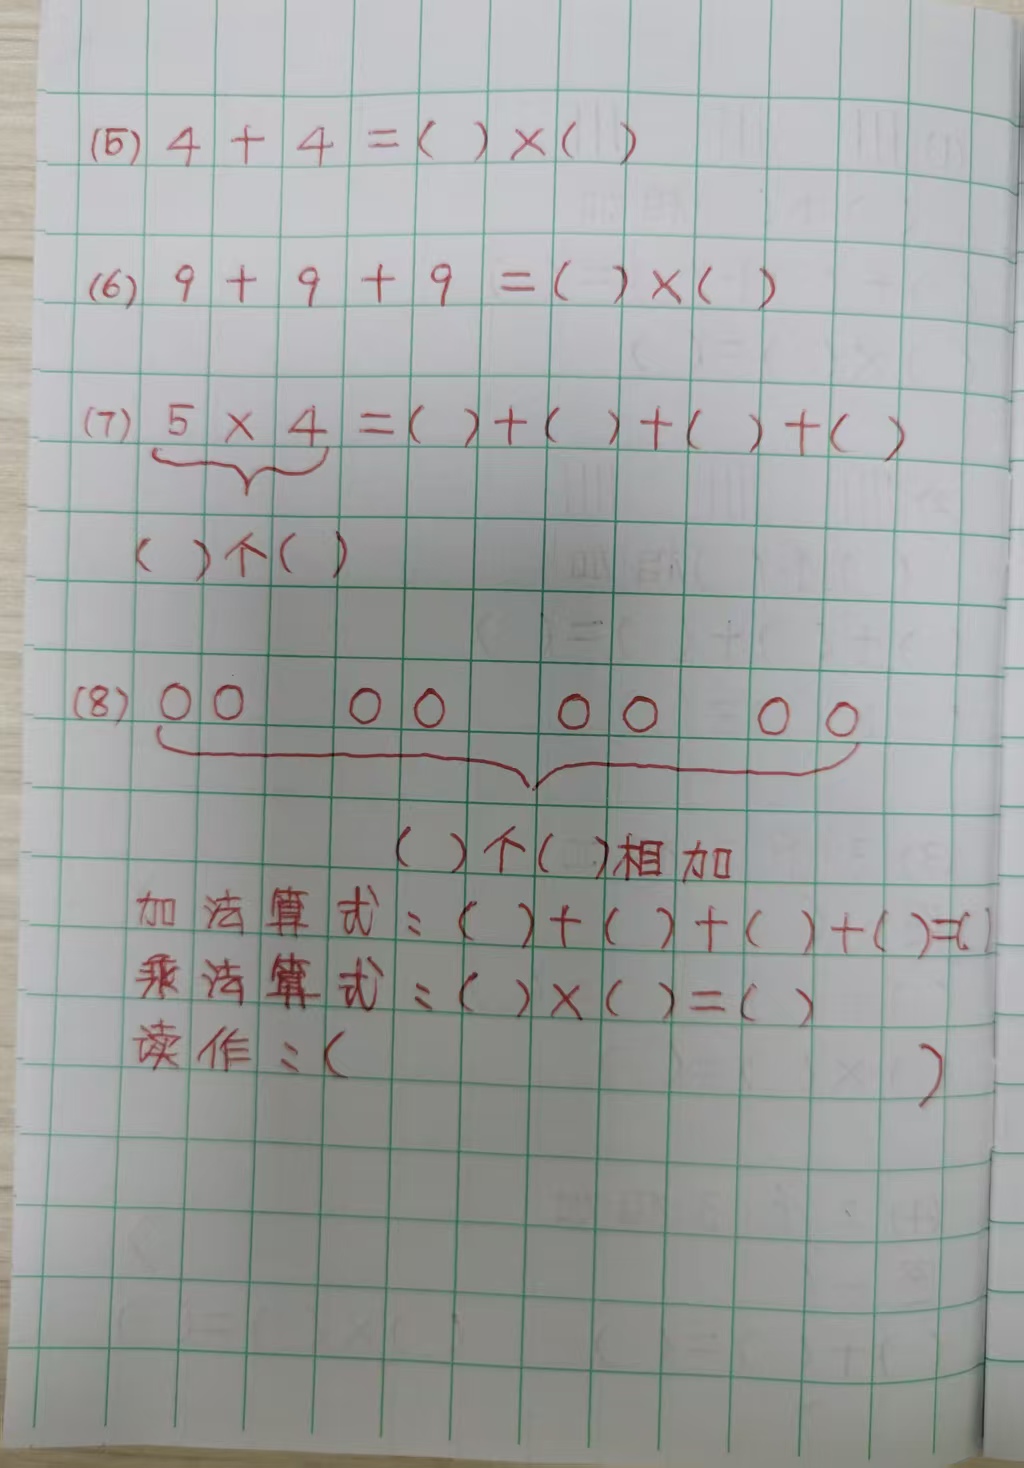 (5) 4 + 4 = ( ) × ( )
(6) 9 + 9 + 9 = ( ) × ( )
(7) 5 × 4 = ( ) + ( ) + ( ) + ( )
( ) 个 ( )
(8) ○○ ○○ ○○ ○○
( ) 个 ( ) 相加
加法算式：( ) + ( ) + ( ) + ( ) = ( )
乘法算式：( ) × ( ) = ( )
读作：( )